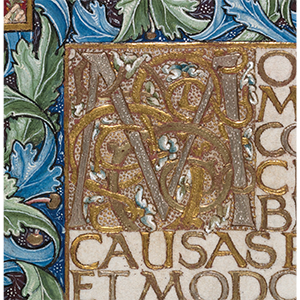 MO
M
CO
CI
B
CAUSAS
ET MODO